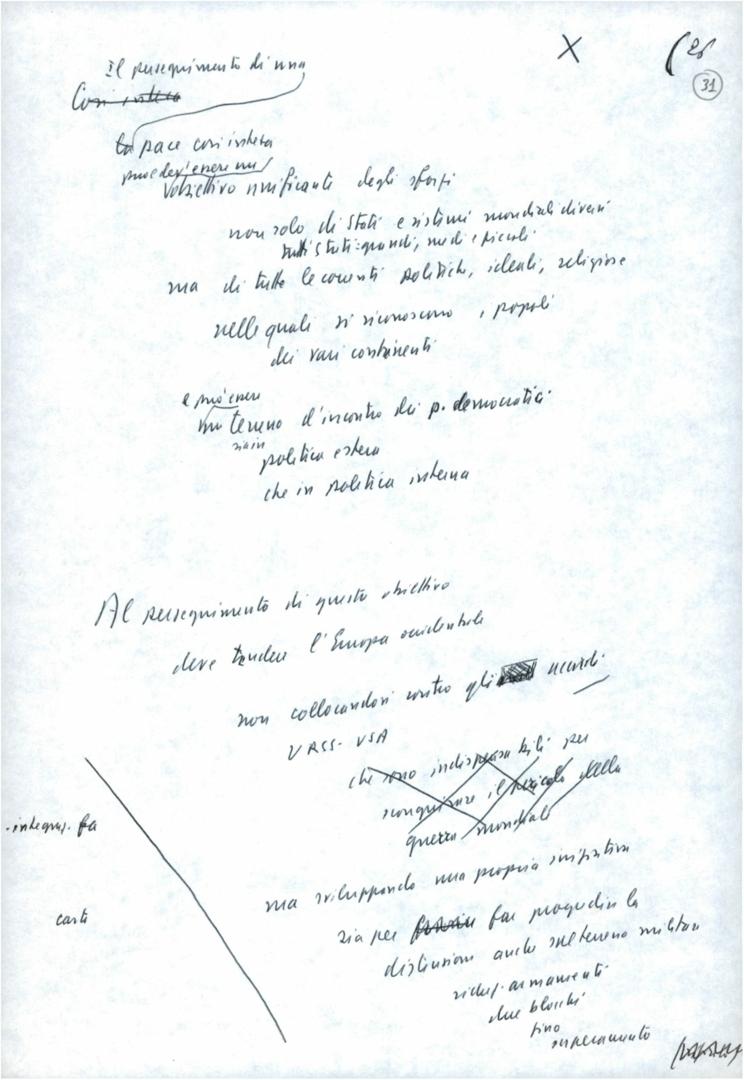 X
(26
31
Il perseguimento di una
Così intesa
la pace così intesa
può dev'essere un
obiettivo unificante degli sforzi
non solo di Stati e sistemi mondiali diversi
tutti Stati: grandi, medi e piccoli
ma di tutte le correnti politiche, ideali, religiose
nelle quali si riconoscono i popoli
dei vari continenti
e può essere
un terreno d'incontro dei p. democratici
sia in
politica estera
che in politica interna
Al perseguimento di questo obiettivo
deve tendere l'Europa occidentale
non collocandosi contro gli accordi
URSS-USA
che sono indispensabili per
scongiurare il pericolo della
guerra mondiale
ma sviluppando una propria iniziativa
sia per far progredire la
distensione anche sul terreno militare
riduz. armamenti
due blocchi
fino
superamento
- integraz. fa
carte